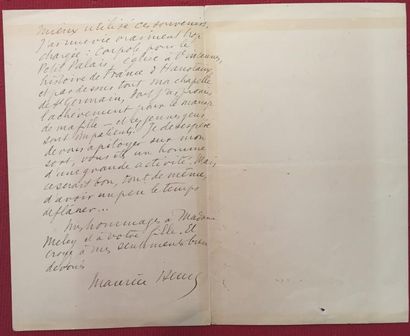 mieux utilisé ces souvenirs.
J'ai une vie vraiment trop
chargée : Coupole pour le
Petit Palais, église à Vincennes,
histoire de France d'Hanotaux
et par dessus tout ma chapelle
de St Germain, dont j'ai promis
l'achèvement pour le mariage
de ma fille — et les jeunes gens
sont impatients ! Je désespère
de vous apitoyer sur mon
sort, vous êtes un homme
d'une grande activité. Mais
ce serait bon, tout de même,
d'avoir un peu le temps
de flâner...
Mes hommages à Madame
et à votre fille. Et
croyez à mes sentiments bien
dévoués
Maurice Denis